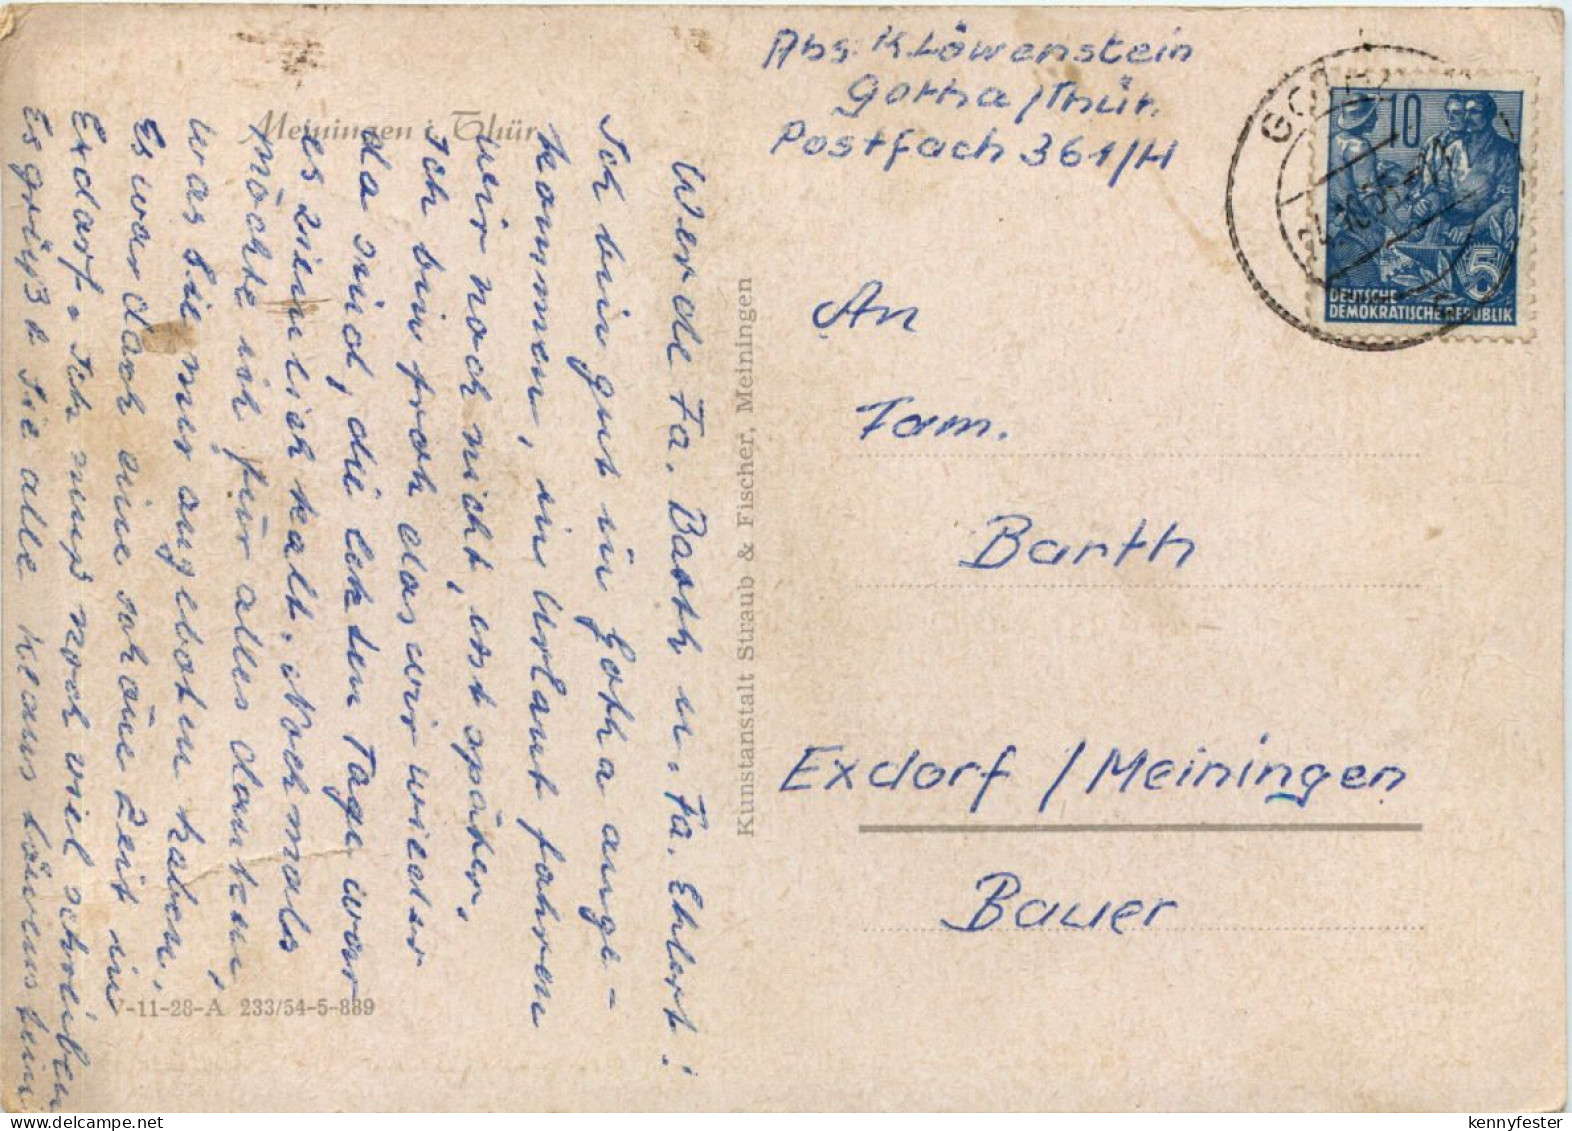 Meiningen i. Thür.
Werde Fa. Barth u. Fa. Ehlert!
Ich bin gut in Gotha ange-
kommen, in Urlaut fahren
wir noch nicht, erst später.
Ich bin froh das wir wieder
da sind, die letzten Tage war
es ziemlich kalt. Nochmals
möchte ich für alles danken,
was Sie mir angeboten haben,
Es war doch eine schöne Zeit in
Exdorf. Ich muß noch viel schreiben
Es grüßt Sie alle Klaus Löwenstein
V-11-28-A 233/54-5-889
Kunstanstalt Straub & Fischer, Meiningen
Abs. K Löwenstein
Gotha/Thür.
Postfach 361/H
GOTHA
10
5
DEUTSCHE
DEMOKRATISCHE REPUBLIK
An
Fam.
Barth
Exdorf / Meiningen
Bauer
kennyfester